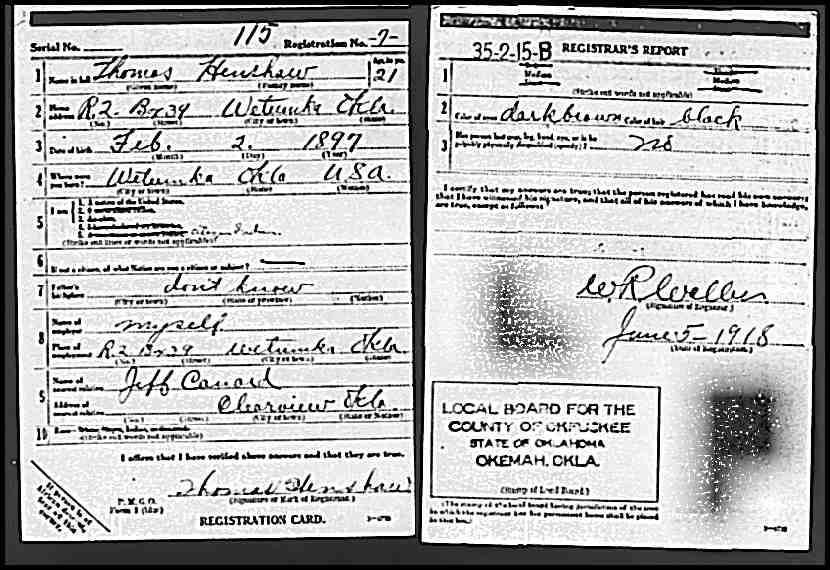 Serial No. 115 Registration No. -7-
1 Name in full Thomas Henshaw Age, in yrs. 21
(Given name) (Family name)
2 Home address R.2. Bx 39 Wetumka Okla.
(No.) (Street) (City or town) (State)
3 Date of birth Feb. 2. 1897
(Month) (Day) (Year)
4 Where were you born? Wetumka Okla U.S.A.
(City or town) (State) (Nation)
5 I am 1. A native of the United States.
(Strike out lines or words not applicable)
6 If not a citizen, of what Nation are you a citizen or subject?
7 Father's birthplace don't know
(City or town) (State or province) (Nation)
8 Name of employer myself
Place of employment R.2 Bx 39 Wetumka Okla.
(No.) (Street) (City or town) (State)
9 Name of nearest relative Jeff Canard
Address of nearest relative Clearview Okla.
(No.) (Street) (City or town) (State or Nation)
10 Race
(Strike out words not applicable)
I affirm that I have verified above answers and that they are true.
Thomas Henshaw
P. M. G. O.
Form 1 (blue) (Signature or Mark of Registrant.)
REGISTRATION CARD.
If person is of African descent, tear off this corner.
35-2-15-B REGISTRAR'S REPORT
1 Medium Medium
(Strike out words not applicable)
2 Color of eyes dark brown Color of hair black
3 Has person lost arm, leg, hand, eye, or is he
no
I certify that my answers are true; that the person registered has read his own answers;
that I have witnessed his signature, and that all of his answers of which I have knowledge,
are true, except as follows:
(Signature of Registrar)
June 5-1918
(Date of Registration.)
LOCAL BOARD FOR THE
COUNTY OF OKFUSKEE
STATE OF OKLAHOMA
OKEMAH, OKLA.
(Stamp of Local Board.)
(The stamp of the local board having jurisdiction of the area
in which the registrant has his permanent home shall be placed
in this box.)